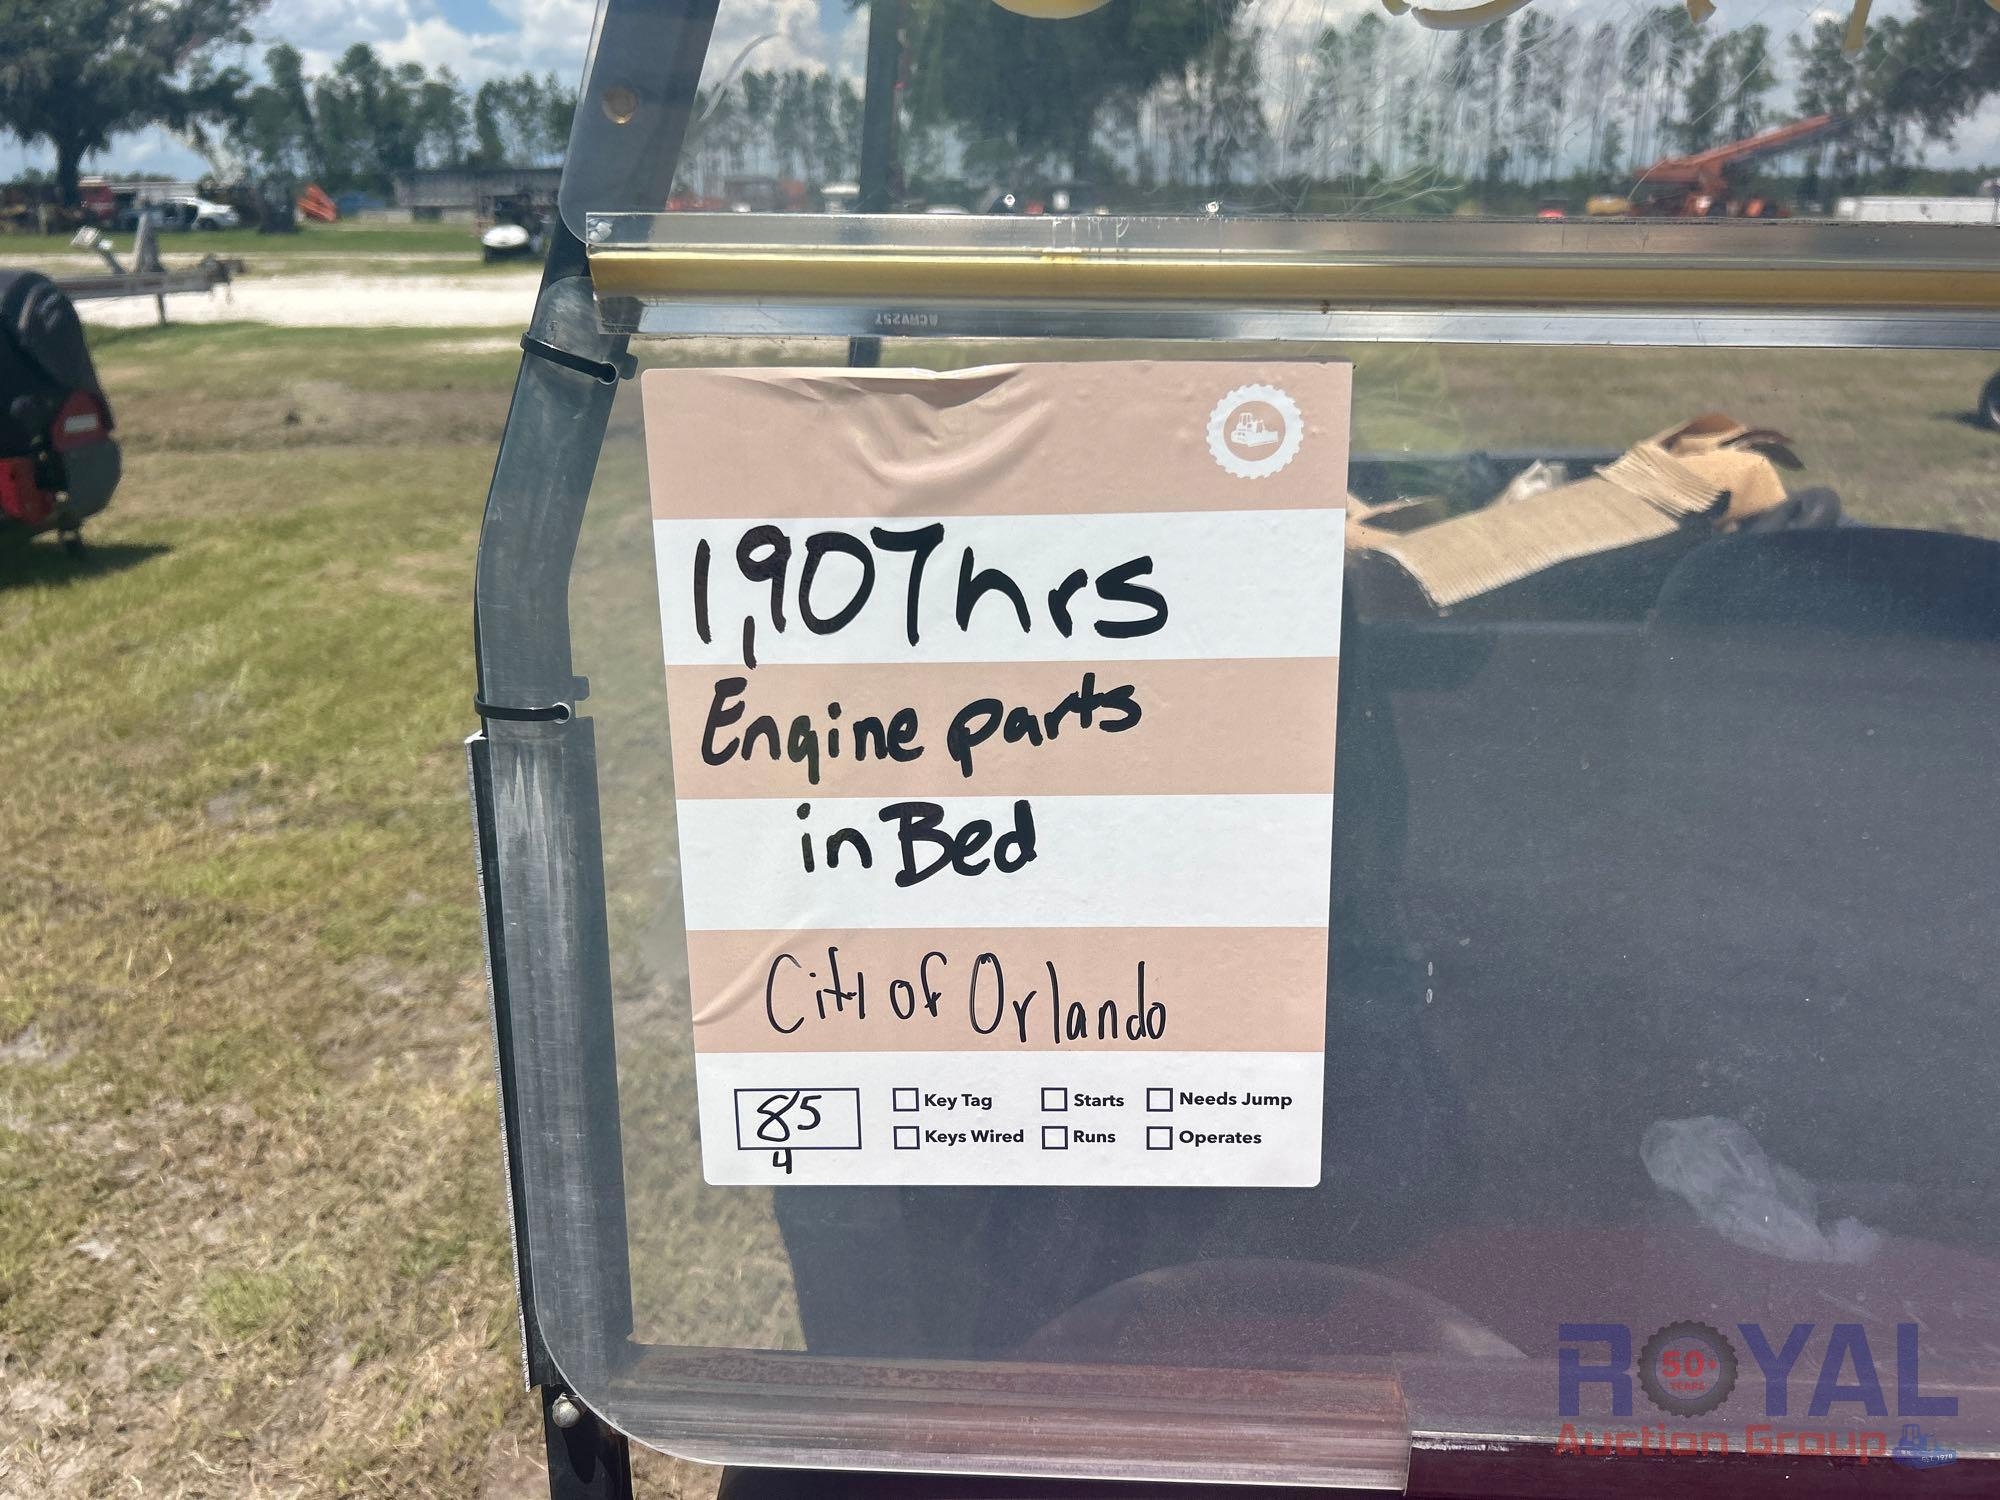 ACRV257
1,907hrs
Engine parts
in Bed
City of Orlando
85
4
Key Tag
Starts
Needs Jump
Keys Wired
Runs
Operates
ROYAL
50+
YEARS
Auction Group
EST. 1970